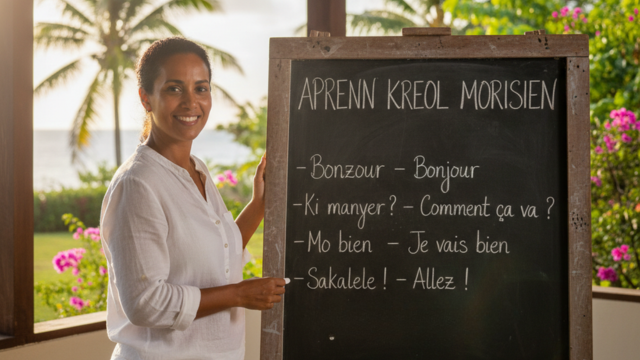 APRENN KREOL MORISIEN
- Bonzour - Bonjour
- Ki manyer? - Comment ça va ?
- Mo bien - Je vais bien
- Sakalele ! - Allez !